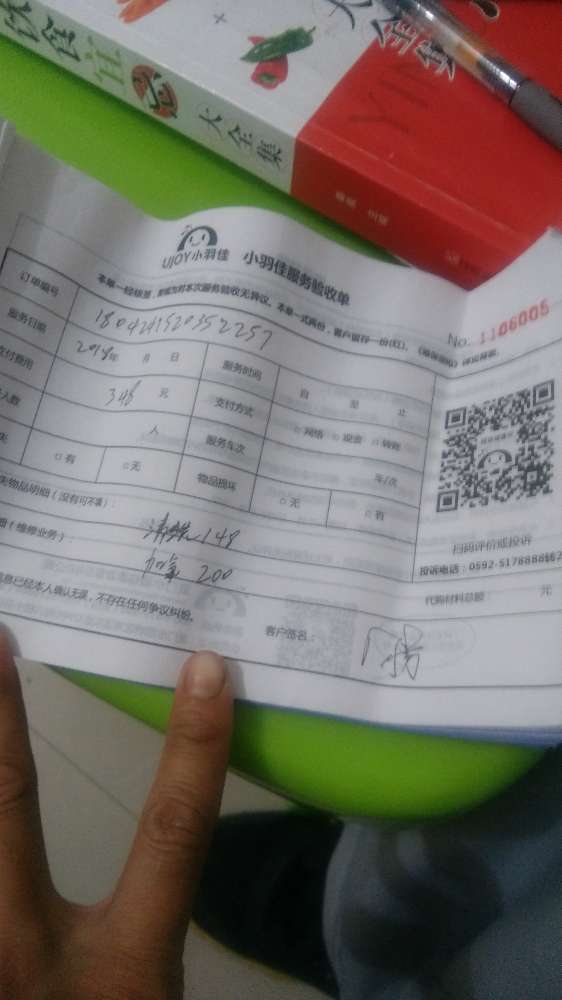 饮食宜忌大全集
大全集
YIN
UJOY小羽佳 小羽佳服务验收单
No. 1106005
本单一经签署，
本单一式两份，客户留存一份（红）。
订单编号 1804241520352257
服务日期 2018年 月 日 服务时间 自 至 止
支付费用 348 元 支付方式 □网络 □现金 □转账
人数 人 服务车次 车/次
□有 □无 物品损坏 □无 □有
失物品明细（没有可不填）：
（维修业务）： 清洗148
加氟 200
代购材料总额： 元
息已经本人确认无误，不存在任何争议纠纷。 客户签名：
扫码评价或投诉
投诉电话：0592-5178888转2